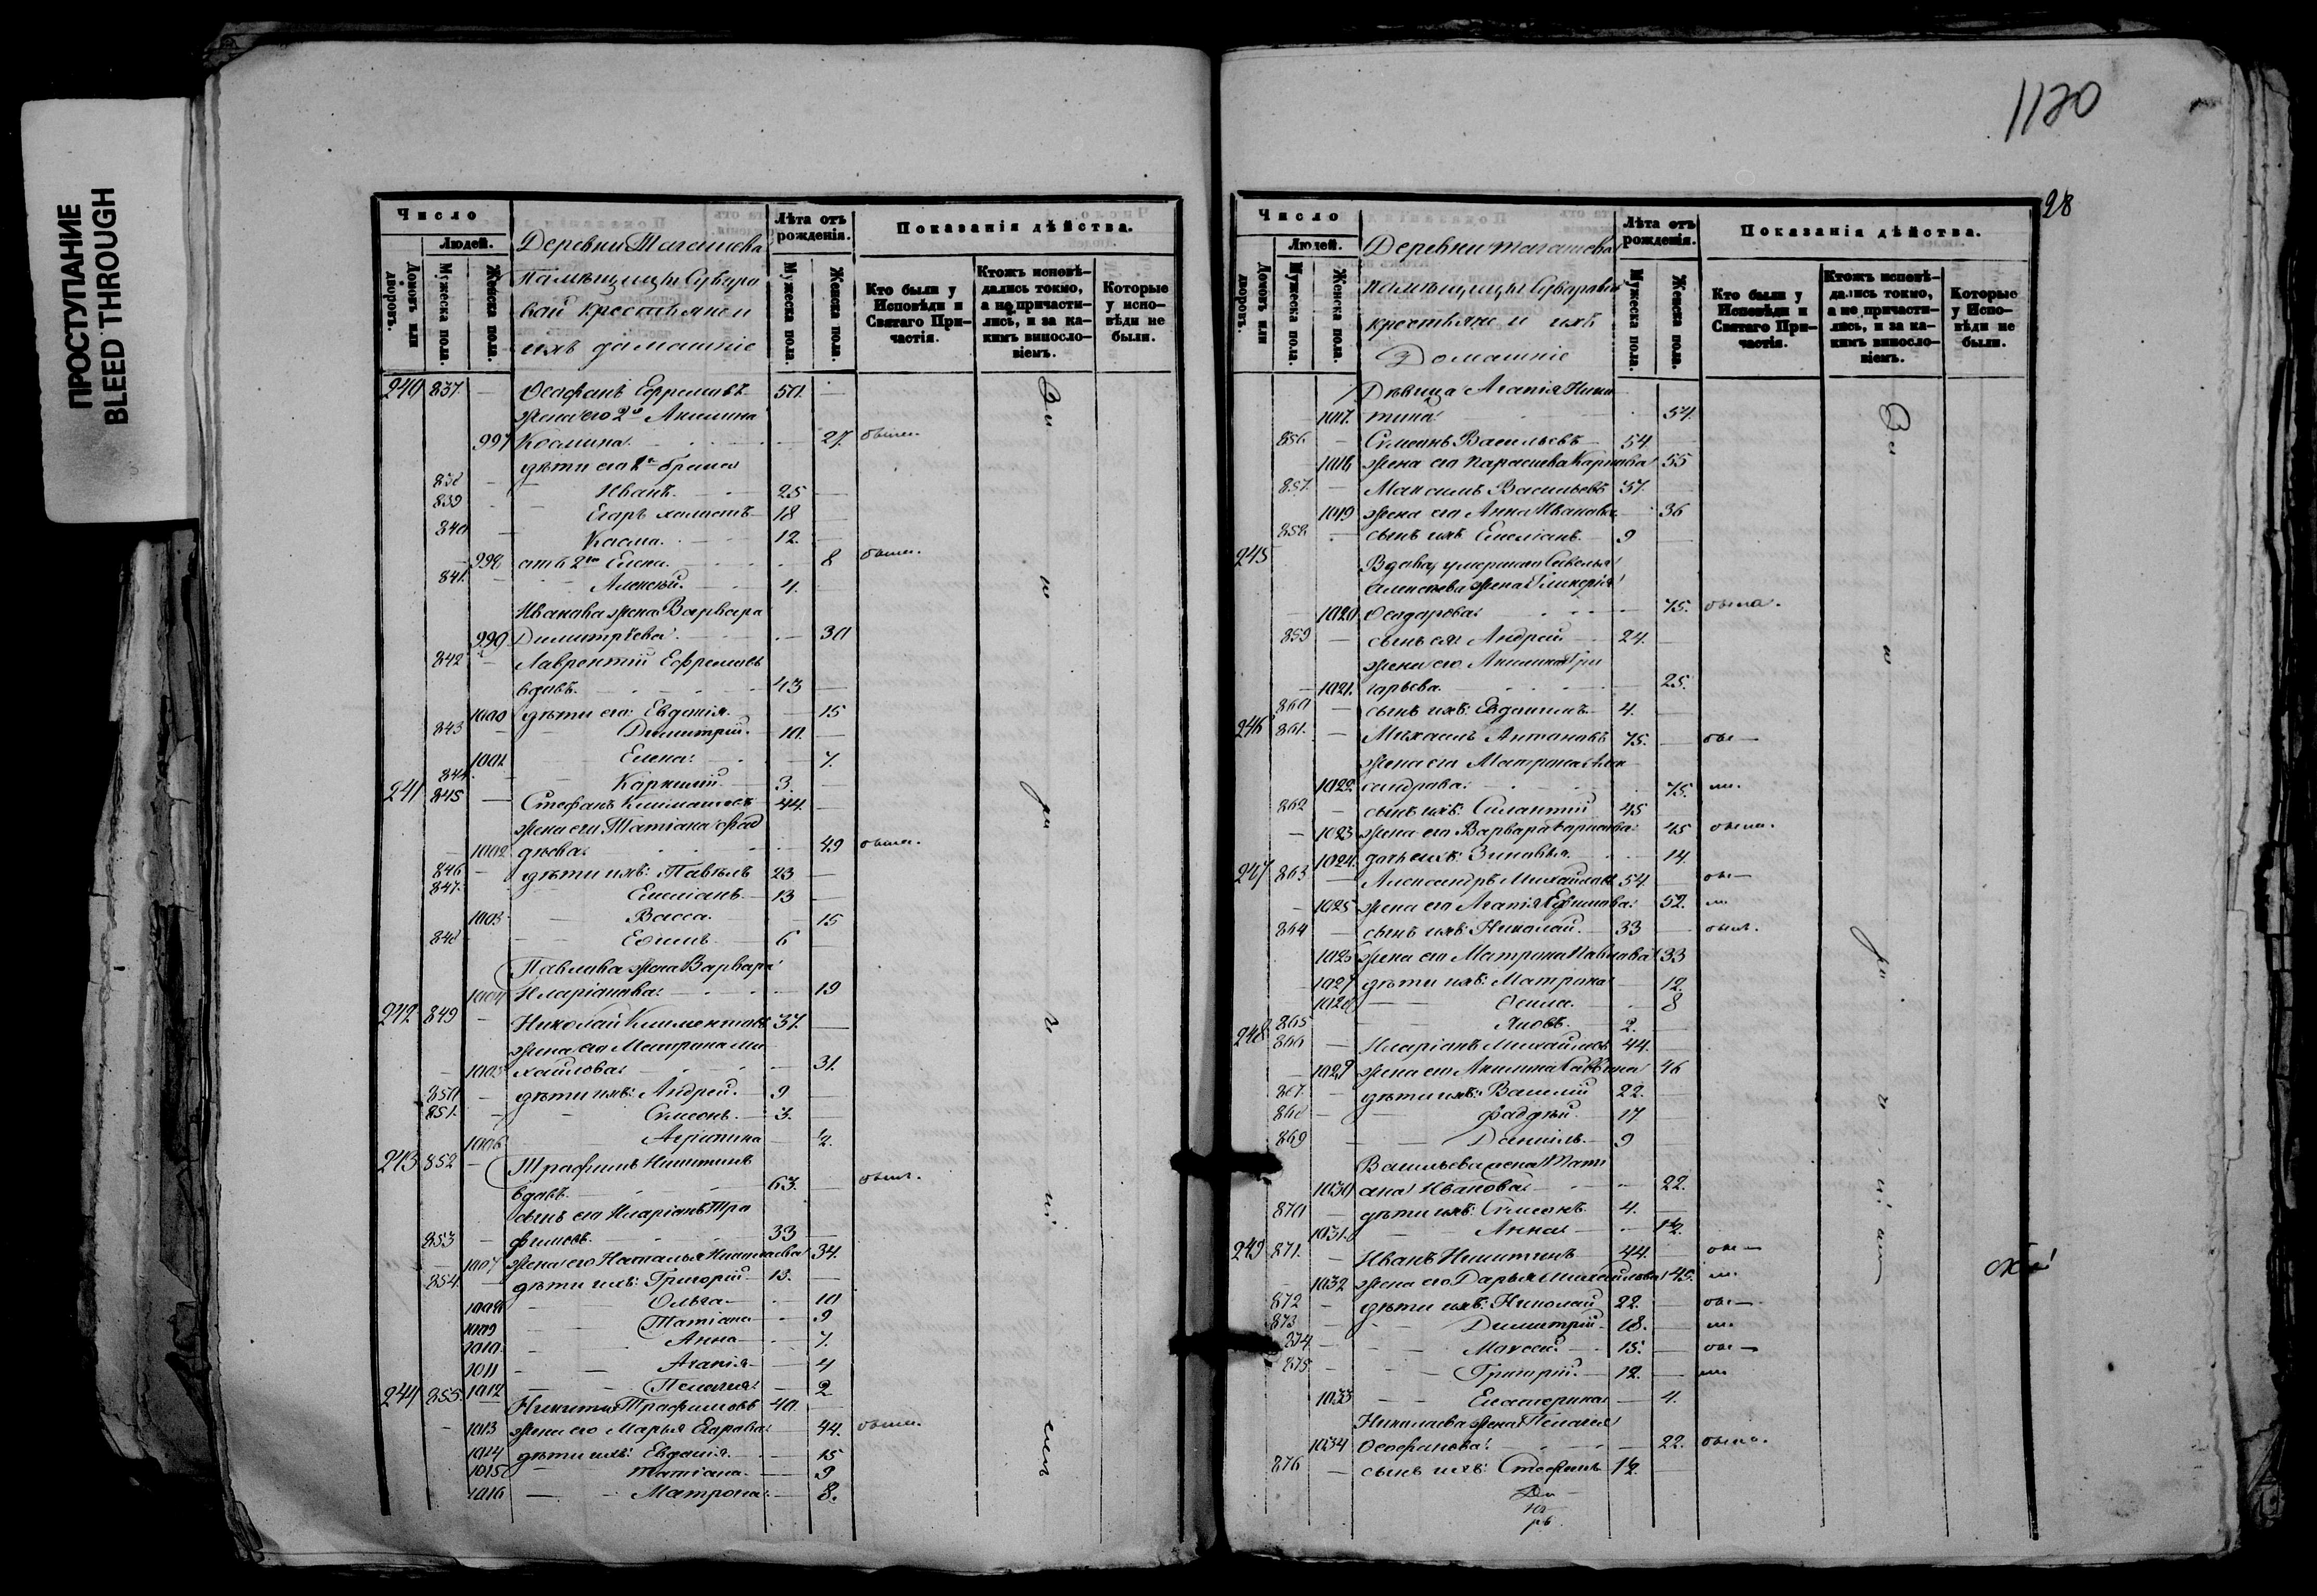 ПРОСТУПАНИЕ
BLEED THROUGH
1120
28
Число
Людей.
Домовъ или дворовъ.
Мужеска пола.
Женска пола.
Деревни Тагашева
Помѣщицы Сувора
вой крестьяне и
ихъ домашніе
Лѣта отъ рожденія.
Мужеска пола.
Женска пола.
Показанія дѣйства.
Кто были у Исповѣди и Святаго Причастія.
Ктожъ исповѣдались токмо, а не причастились, и за какимъ винословіемъ.
Которые у исповѣди не были.
240 837 — Ѳеофанъ Ефремовъ 50 —
жена его 2я Акилина
997 Космина — 27 быша.
дѣти его 1й брака
838 — Иванъ 25 —
839 — Егоръ холостъ 18 —
840 — Косма 12 —
— 998 отъ 2го Елена — 8 быша.
841 — Алексѣй 4 —
Иванова жена Варвара
999 Димитріева — 30
842 — Лаврентій Ефремовъ
вдовъ 43 —
1000 дѣти его: Евдокія — 15
843 — Димитрій 10 —
1001 Елена — 7.
844 — 3 —
241 845 — Стефанъ 44 —
жена его Татіана Фад
— 1002 дѣева — 49 быша.
846 — дѣти ихъ: Павелъ 23 —
847 — Емеліанъ 13 —
1003 — Васса — 15
848 — Ефимъ 6 —
Павлова жена Варвара
1004 Иларіонова — 19
242 849 — Николай Климентовъ 37 —
жена его Матрона Ми
— 1005 хайлова — 31.
850 — дѣти ихъ: Андрей 9 —
851 — Симеонъ 3 —
1006 Агрипина — ½
243 852 — Трофимъ Никитинъ
вдовъ 63 — былъ.
сынъ его Иларіонъ Тро
853 — фимовъ 33 —
— 1007 жена его Наталья 34.
854 — дѣти ихъ: Григорій 13 —
1008 Ольга — 10
1009 Татіана — 9
1010 Анна — 7.
1011 Агапія — 4
1012 Пелагія — 2
244 855 — Никита Трофимовъ 40 —
— 1013 жена его Марья Егорова — 44. быша.
1014 дѣти ихъ: Евдокія — 15
1015 Татіана — 9
1016 Матрона — 8.
Число
Людей.
Домовъ или дворовъ.
Мужеска пола.
Женска пола.
Деревни Тагашева
помѣщицы Суворовой
крестьяне и ихъ
Домашніе
Лѣта отъ рожденія.
Мужеска пола.
Женска пола.
Показанія дѣйства.
Кто были у Исповѣди и Святаго Причастія.
Ктожъ исповѣдались токмо, а не причастились, и за какимъ винословіемъ.
Которые у Исповѣди не были.
Дѣвица Агапія Ники
1017 тина 54.
856 — Симеонъ Васильевъ 54 —
1018 жена его Параскева Карпова 55
857 — Максимъ Васильевъ 37 —
1019 жена его Анна Иванова 36
858 — сынъ ихъ Емеліанъ 9 —
245 Вдова умершаго Савелья
Алексѣева жена Гликерія
— 1020 Ѳеодорова — 75. была.
859 — сынъ ея Андрей 24 —
жена его Акилина Гри
— 1021 горьева — 25.
860 — сынъ ихъ: Евдокимъ 4 —
246 861 — Михаилъ Антоновъ 75 — бы—
жена его Матрона Алек
1022 сандрова — 75. ша.
862 — сынъ ихъ: Силантій 45
— 1023 жена его Варвара 45 быша.
1024 дочь ихъ: Зиновья — 14
247 863 — Александръ Михайловъ 54 — бы—
— 1025 жена его Агапія Ефимова 52. ша
864 — сынъ ихъ: Николай 33 — былъ.
1026 жена его Матрона Павлова 33
— 1027 дѣти ихъ: Матрона — 12.
1028 — 8
865 Яковъ 2 —
248 866 — Иларіонъ Михайловъ 44 —
— 1029 жена его Акилина Саввина 46
867 — дѣти ихъ: Василій 22 —
868 — Фаддѣй 17
869 — Даніилъ 9 —
Васильева жена Тати
1030 ана Иванова — 22.
870 — дѣти ихъ: Симеонъ 4 —
1031 Анна — 1½.
249 871 — Иванъ Никитинъ 44 — бы—
1032 жена его Дарья Михайлова 45. ша
872 — дѣти ихъ: Николай 22 — бы—
873 — Димитрій 18 — ша
874 — Моѵсей 15 — бы—
875 — Григорій 12 — ша
1033 Екатерина — 4.
Николаева жена Пелагея
1034 Ѳеофанова — 22. быша.
876 — сынъ ихъ: Стефанъ 1½ —